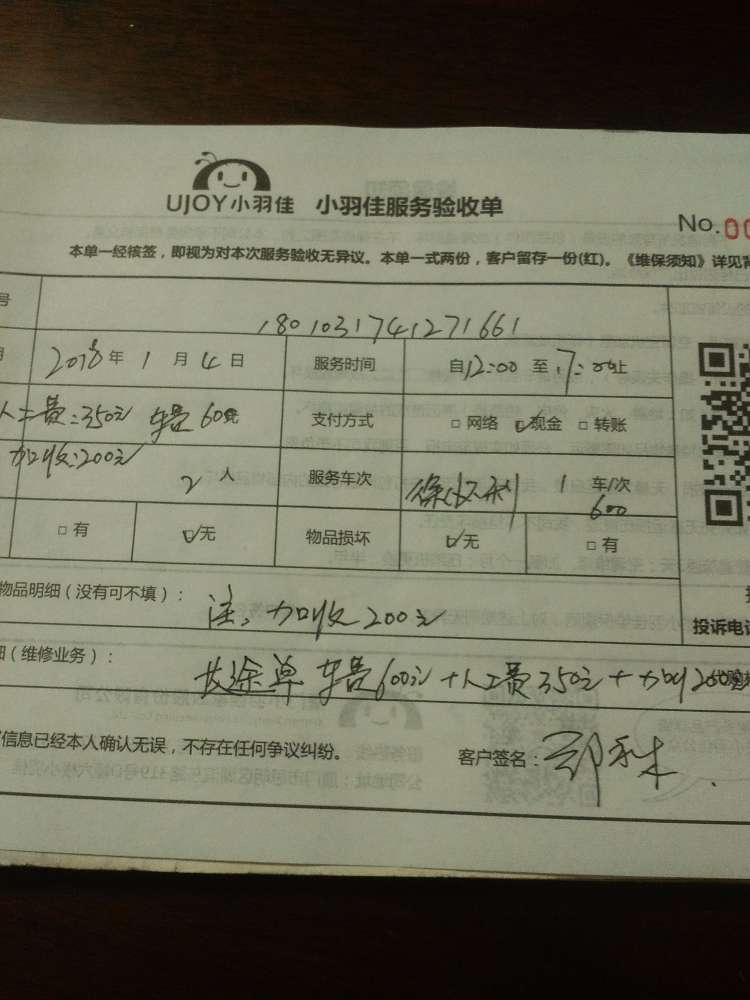 UJOY小羽佳 小羽佳服务验收单
No.00
本单一经核签，即视为对本次服务验收无异议。本单一式两份，客户留存一份(红)。《维保须知》详见背
号 1801031741271661
2018年1月4日 服务时间 自12:00 至17:00止
人工费:350元 车费600元 支付方式 □网络 ☑现金 □转账
加收:200元
2人 服务车次 1 车/次
600
□有 ☑无 物品损坏 ☑无 □有
物品明细（没有可不填）： 注：加收200元
投诉电话
细（维修业务）： 长途单 车费600元+人工费350元+加收200
信息已经本人确认无误，不存在任何争议纠纷。 客户签名：